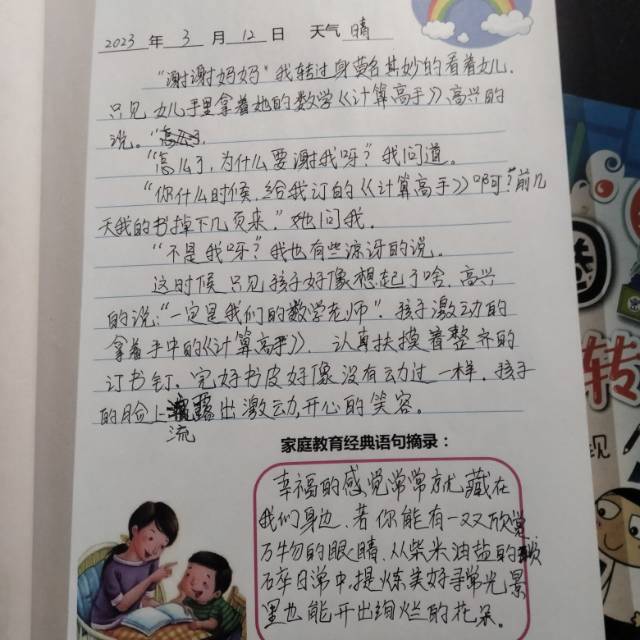 2023 年 3 月 12 日 天气 晴
“谢谢妈妈”我转过身莫名其妙的看着女儿.
只见女儿手里拿着她的数学《计算高手》高兴的
说。
“怎么了,为什么要谢我呀?”我问道。
“你什么时候,给我订的《计算高手》啊?前几
天我的书掉下几页来.”她问我.
“不是我呀?”我也有些凉讶的说。
这时候只见孩子好像想起了啥.高兴
的说:“一定是我们的数学老师”.孩子激动的
拿着手中的《计算高手》.认真抚摸着整齐的
订书钉.完好书皮好像没有动过一样.孩子
的脸上流露出激动,开心的笑容。
家庭教育经典语句摘录:
幸福的感觉常常就藏在
我们身边.若你能有一双欣赏
万物的眼睛.从柴米油盐的琐
碎日常中,提炼美好寻常光景
里也能开出绚烂的花朵。
转
现